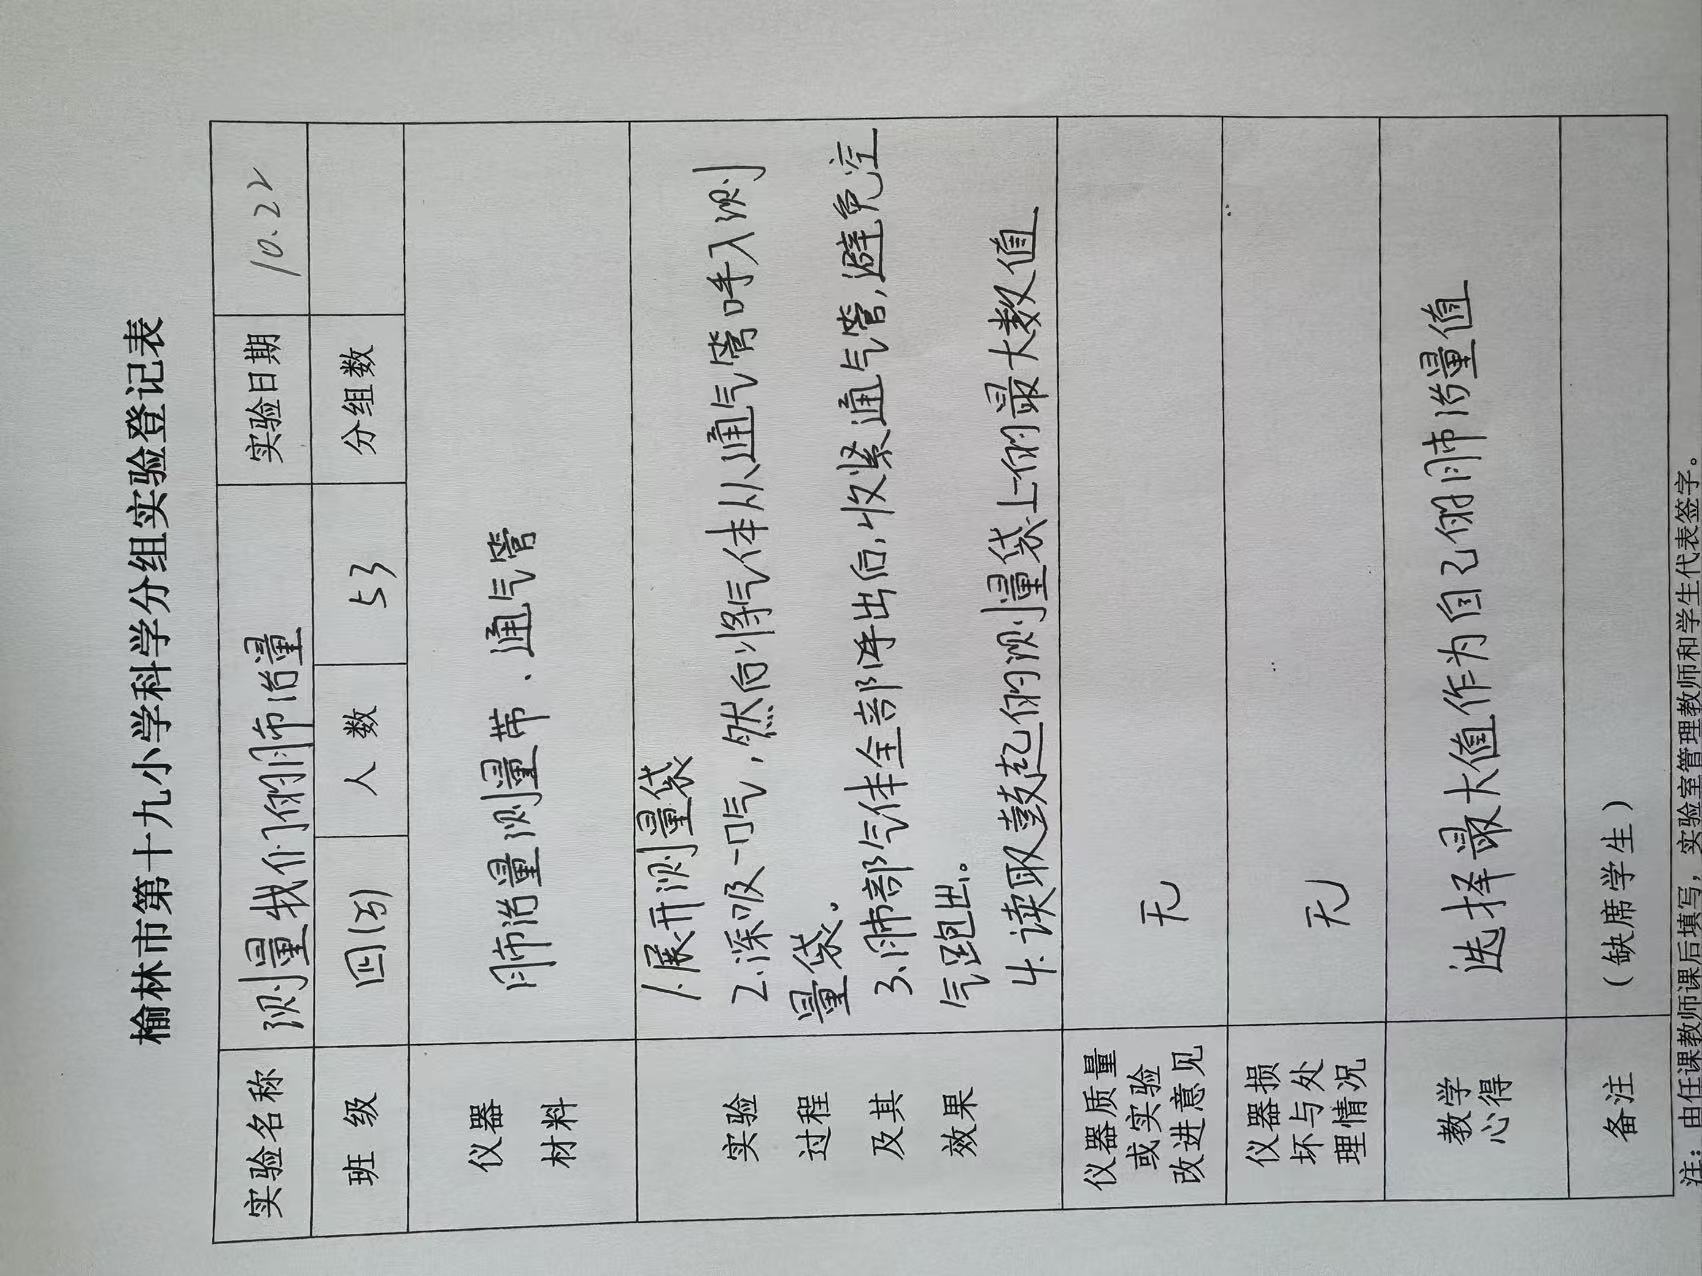 榆林市第十九小学科学分组实验登记表
实验名称 测量我们的肺活量 实验日期 10.22
班 级 四(5) 人 数 53 分组数
仪器 材料 肺活量测量带、通气管
实验 过程 及其 效果
1.展开测量袋
2.深吸一口气,然后将气体从通气管呼入测
量袋。
3.肺部气体全部呼出后,收紧通气管,避免空
气跑出。
4.读取鼓起的测量袋上的最大数值
仪器质量 或实验 改进意见 无
仪器损 坏与处 理情况 无
教学 心得 选择最大值作为自己的肺活量值
备注 (缺席学生)
注:由任课教师课后填写,实验室管理教师和学生代表签字。